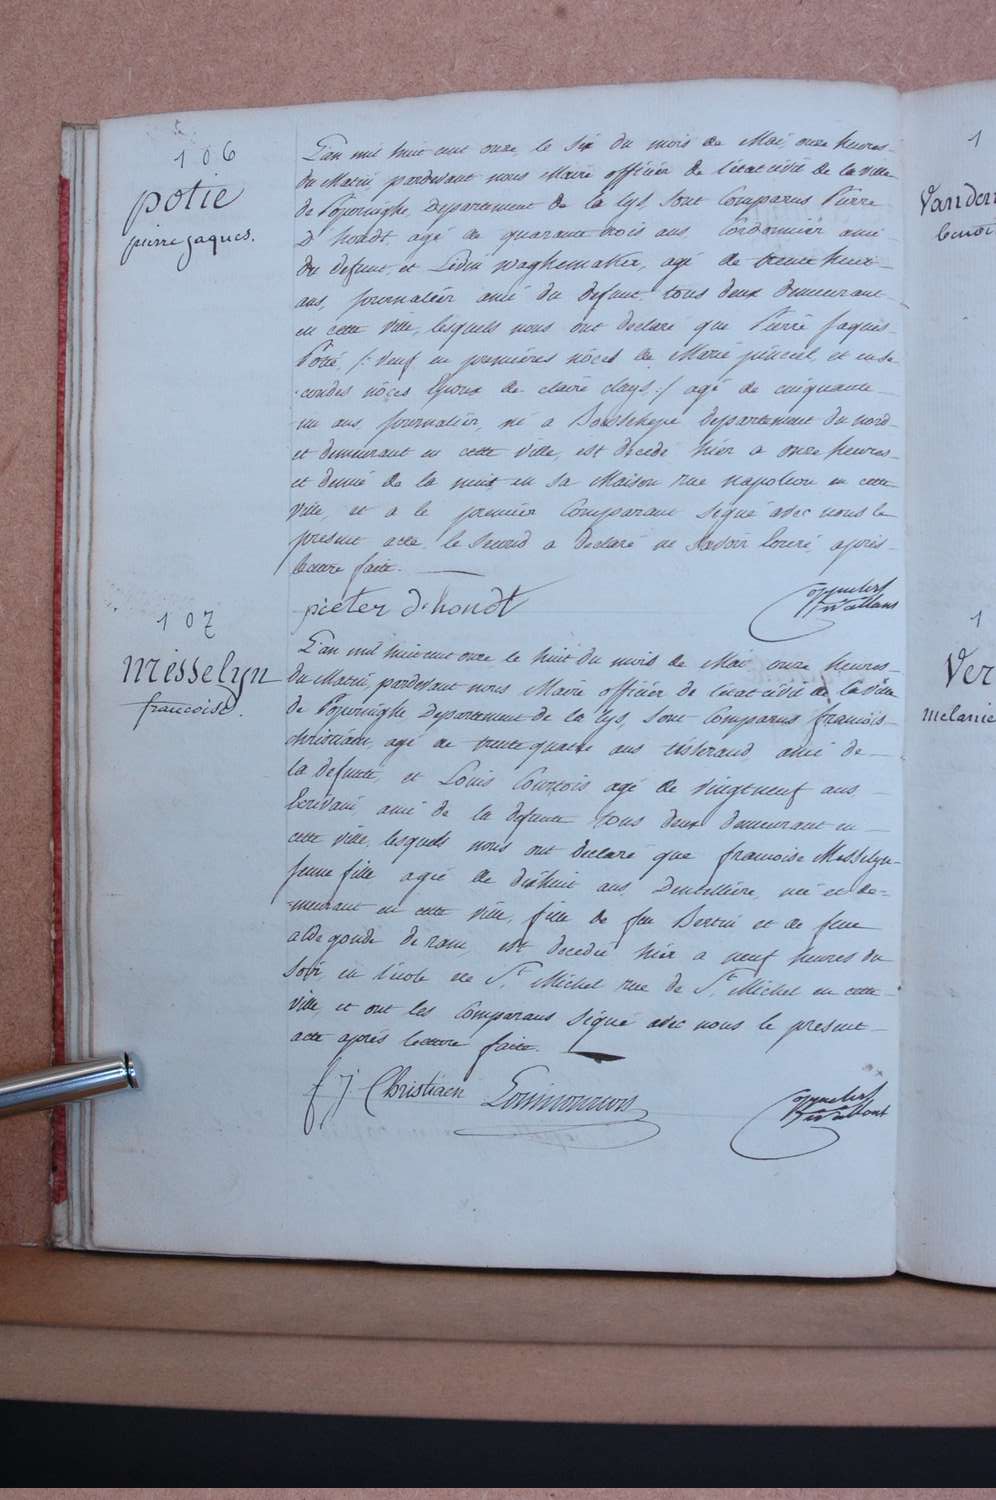 106
potie
pierre jaques.
L'an mil huit cent onze, le six du mois de Mai, onze heures
du Matin, pardevant nous Maire officier de l'état civil de la ville
de Poperinghe Departement de la Lys, sont Comparus Pierre
D'hondt, agé de quarante trois ans Cordonnier ami
du defunt, et Lidin Waghemaker, agé de trente huit
ans, journalier ami du defunt, tous deux demeurant
en cette ville, lesquels nous ont declaré que Pierre Jaques
Potié, /: veuf en premières nôces de Marie et en se
condes nôces Epoux de claire clays :/ agé de cinquante
un ans, journalier, né a Boeschepe Departement du nord
et demeurant en cette ville, est decedé hier a onze heures
et demie de la nuit en sa Maison rue napoleon en cette
ville, et a le premier Comparant signé avec nous le
present acte, le second a declaré ne savoir écrire, après
lecture faite.
pieter d'hondt
107
Messelyn
francoise.
L'an mil huit cent onze le huit du mois de Mai onze heures
du Matin, pardevant nous Maire officier de l'état civil de la ville
de Poperinghe Departement de la Lys, sont Comparus francois
christiaen, agé de trente quatre ans tisserand, ami de
la defunte, et Louis Courtois agé de vingt neuf ans
Ecrivain ami de la defunte tous deux demeurant en
cette ville, lesquels nous ont declaré que francoise Messelyn
jeune fille agée de dixhuit ans, Dentellière, née et de=
meurant en cette ville, fille de feu Bertin et de feue
aldegonde de ram, est decedée hier a neuf heures du
soir en l'école de St. Michel rue de St. Michel en cette
ville, et ont les Comparans signé avec nous le present
acte après lecture faite.
f j Christiaen
1
Vanden
benoi
1
Ver
melanie